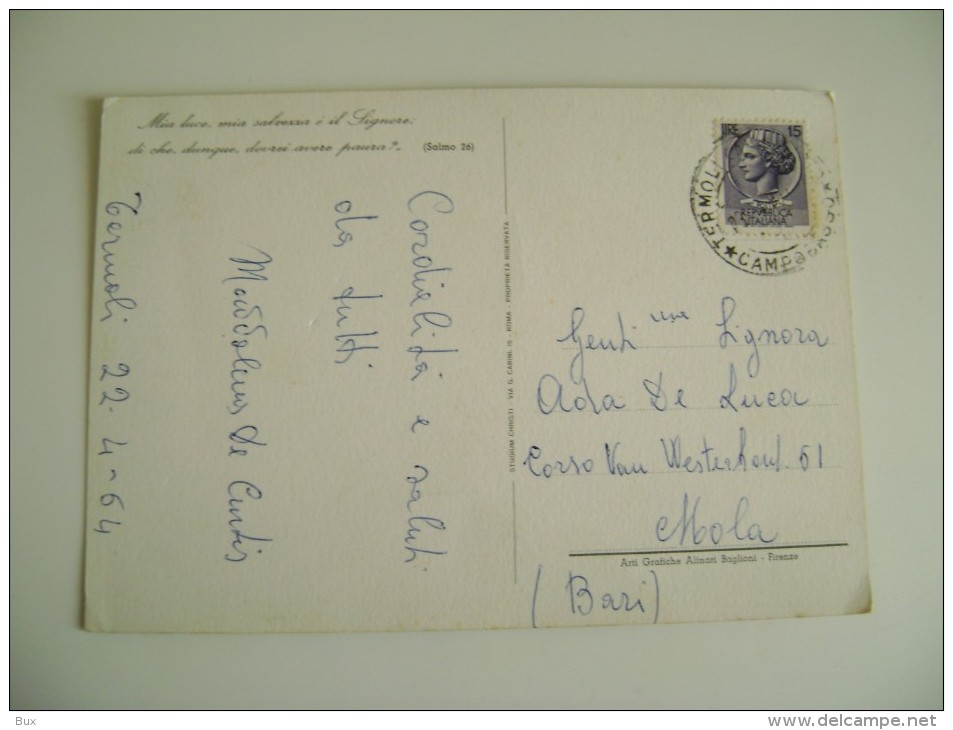 Mia luce, mia salvezza è il Signore:
di che, dunque, dovrei avere paura?..
(Salmo 26)
Cordialità e saluti
da tutti
De Curtis
Termoli 22-4-64
STUDIUM CHRISTI - VIA G. CARINI, - ROMA - PROPRIETÀ RISERVATA
LIRE 15
REPVBBLICA
ITALIANA
TERMOLI
Genti ma Signora
Ada De Luca
Corso Van Westerhout. 61
Mola
Arti Grafiche Alinari Baglioni - Firenze
(Bari)
Bux
www.delcampe.net